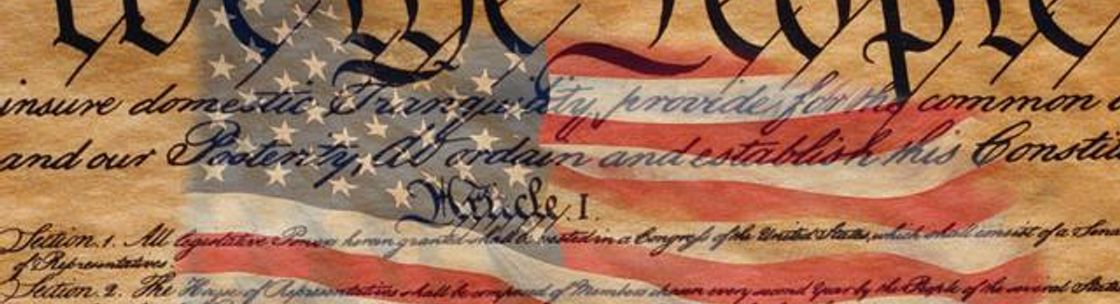 We the People
insure domestic Tranquility, provide for the common
and our Posterity, do ordain and establish this Constit
Article. I.
Section. 1. All legislative Powers herein granted shall be vested in a Congress of the United States, which shall consist of a Sena
of Representatives
Section. 2. The House of Representatives shall be composed of Members chosen every second Year by the People of the several State